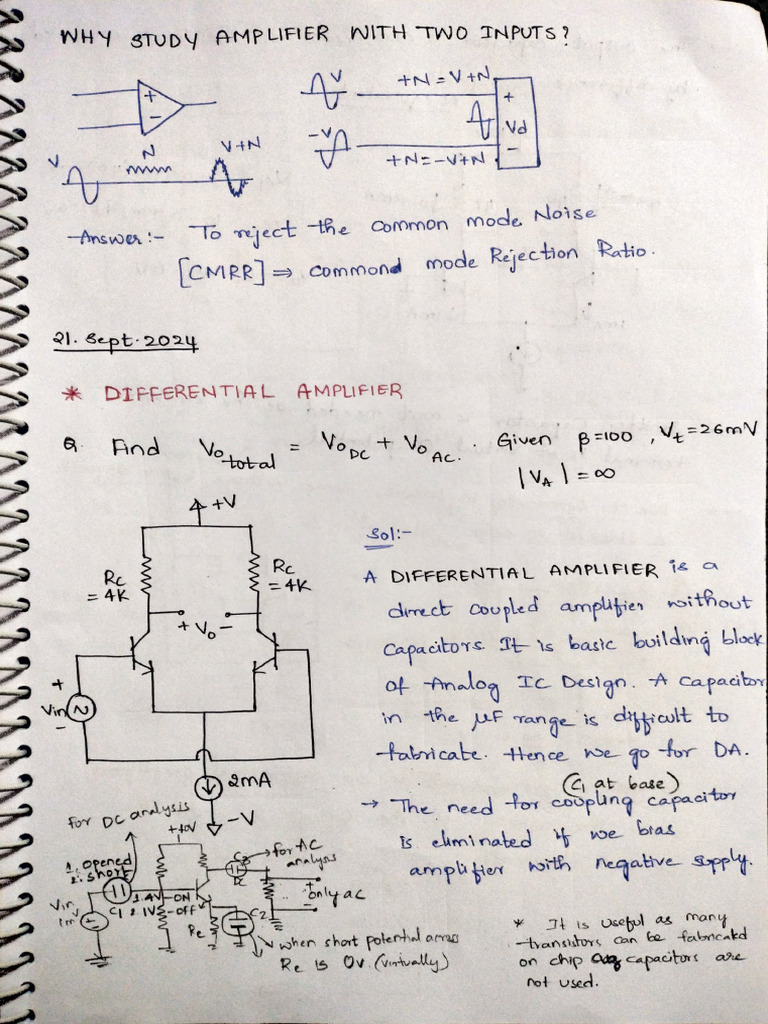 WHY STUDY AMPLIFIER WITH TWO INPUTS?
+
-
V
N
V+N
V
+N = V+N
-V
+N = -V+N
+
Vd
-
Answer:- To reject the common mode Noise
[CMRR] ⇒ commond mode Rejection Ratio.
21. Sept. 2024
* DIFFERENTIAL AMPLIFIER
Q. Find Vo total = Vo DC + Vo AC. Given β=100, Vt=26mV
|VA| = ∞
+V
RC = 4K
RC = 4K
+ Vo -
+
Vin
-
2mA
-V
Sol:-
A DIFFERENTIAL AMPLIFIER is a
direct coupled amplifier without
capacitors. It is basic building block
of Analog IC Design. A Capacitor
in the μF range is difficult to
fabricate. Hence we go for DA.
(C1 at base)
→ The need for coupling capacitor
is eliminated if we bias
amplifier with negative supply.
* It is useful as many
transistors can be fabricated
on chip as capacitors are
not used.
For DC analysis
1. opened
2. short
+10V
C3
for AC
analysis
DC
+
only ac
-
Vin
1mV
C1
-ON
2.1V
-OFF
Re
C2
when short potential across
Re is 0V. (virtually)